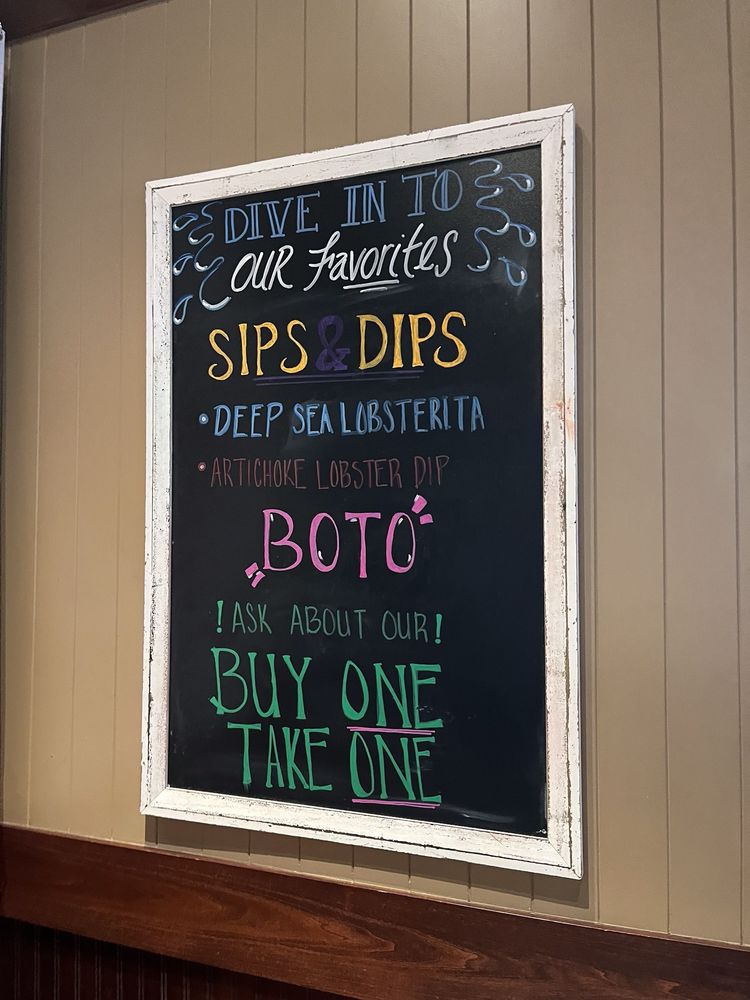 DIVE IN TO
OUR favorites
SIPS & DIPS
• DEEP SEA LOBSTERITA
• ARTICHOKE LOBSTER DIP
BOTO
! ASK ABOUT OUR !
BUY ONE
TAKE ONE